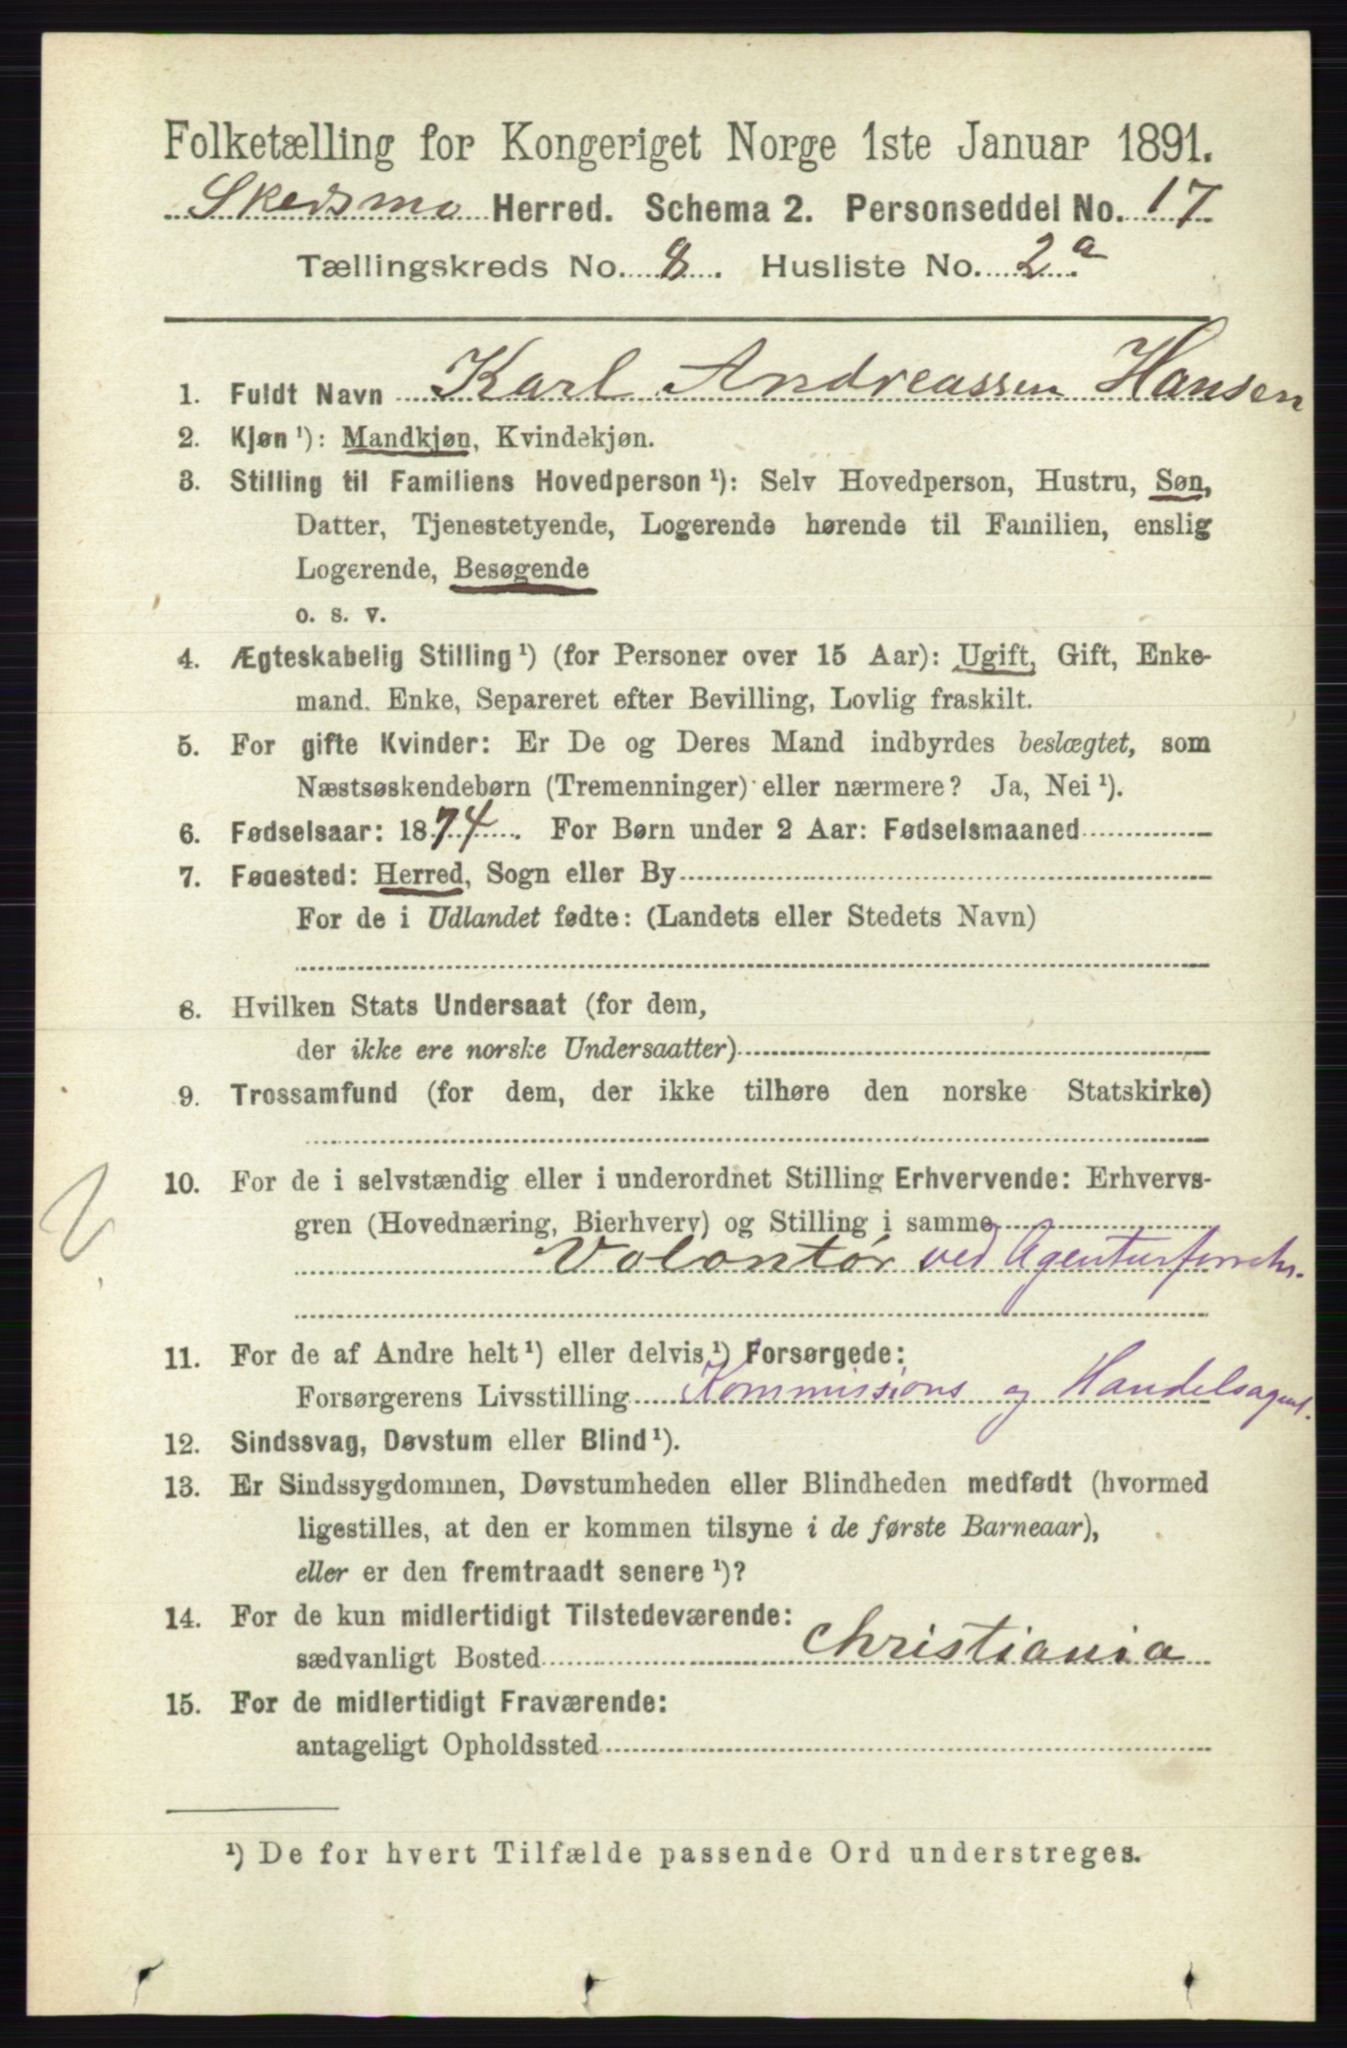 Folketælling for Kongeriget Norge 1ste Januar 1891.
Skedsmo Herred. Schema 2. Personseddel No. 17
Tællingskreds No. 8. Husliste No. 2a
1. Fuldt Navn Karl Andreassen Hansen
2. Kjøn ¹): Mandkjøn, Kvindekjøn.
3. Stilling til Familiens Hovedperson ¹): Selv Hovedperson, Hustru, Søn,
Datter, Tjenestetyende, Logerende hørende til Familien, enslig
Logerende, Besøgende
o. s. v.
4. Ægteskabelig Stilling ¹) (for Personer over 15 Aar): Ugift, Gift, Enke-
mand. Enke, Separeret efter Bevilling, Lovlig fraskilt.
5. For gifte Kvinder: Er De og Deres Mand indbyrdes beslægtet, som
Næstsøskendebørn (Tremenninger) eller nærmere? Ja, Nei ¹).
6. Fødselsaar: 1874. For Børn under 2 Aar: Fødselsmaaned
7. Fødested: Herred, Sogn eller By
For de i Udlandet fødte: (Landets eller Stedets Navn)
8. Hvilken Stats Undersaat (for dem,
der ikke ere norske Undersaatter)
9. Trossamfund (for dem, der ikke tilhøre den norske Statskirke)
10. For de i selvstændig eller i underordnet Stilling Erhvervende: Erhvervs-
gren (Hovednæring, Bierhverv) og Stilling i samme
Volontør ved Agenturforretn.
11. For de af Andre helt ¹) eller delvis ¹) Forsørgede:
Forsørgerens Livsstilling Kommissions og Handelsagent.
12. Sindssvag, Døvstum eller Blind ¹).
13. Er Sindssygdommen, Døvstumheden eller Blindheden medfødt (hvormed
ligestilles, at den er kommen tilsyne i de første Barneaar),
eller er den fremtraadt senere ¹)?
14. For de kun midlertidigt Tilstedeværende:
sædvanligt Bosted Christiania
15. For de midlertidigt Fraværende:
antageligt Opholdssted
¹) De for hvert Tilfælde passende Ord understreges.